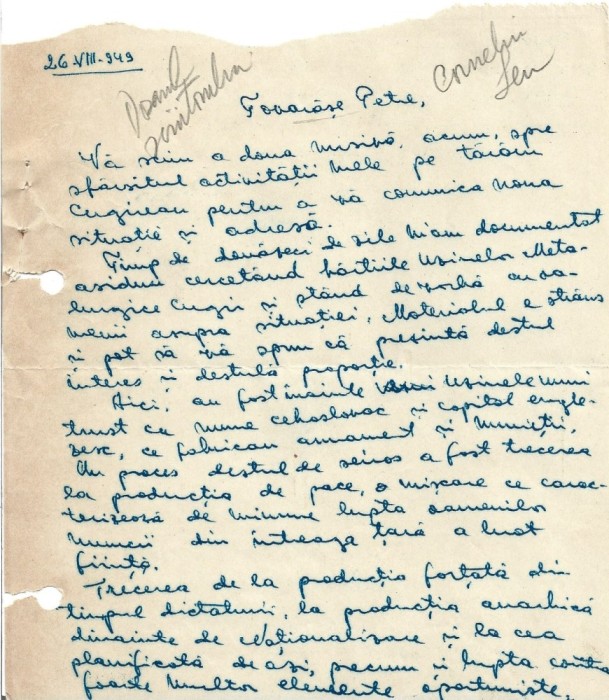 26.VIII.949
Corneliu
Leu
Tovarășe Petre,
Vă scriu a doua misivă, acum, spre
sfârșitul activității mele pe tărâm
Cugirean pentru a vă comunica noua
situație și adresă.
Timp de douăzeci de zile m'am documentat
asiduu cercetând hârtiile Uzinelor Meta-
lurgice Cugir și stând de vorbă cu oa-
menii asupra situației. Materialul e strâns
și pot să vă spun că prezintă destul
interes și destulă proporție.
Aici, au fost înainte Uzinele unui
trust cu nume cehoslovac și capital engle-
zesc, ce fabricau armament și muniții.
Un proces destul de serios a fost trecerea
la producția de pace, o mișcare ce carac-
terizează de minune lupta oamenilor
muncii din întreaga țară a luat
ființă.
Trecerea de la producția forțată din
timpul dictaturii, la producția anarhică
dinainte de Naționalizare și la cea
planificată de azi, precum și lupta contra
foarte multor elemente oportuniste,